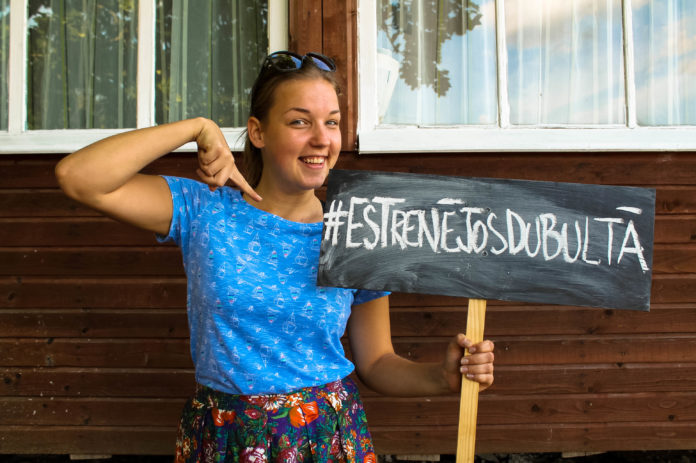 #ESTRENĒJOSDUBULTĀ